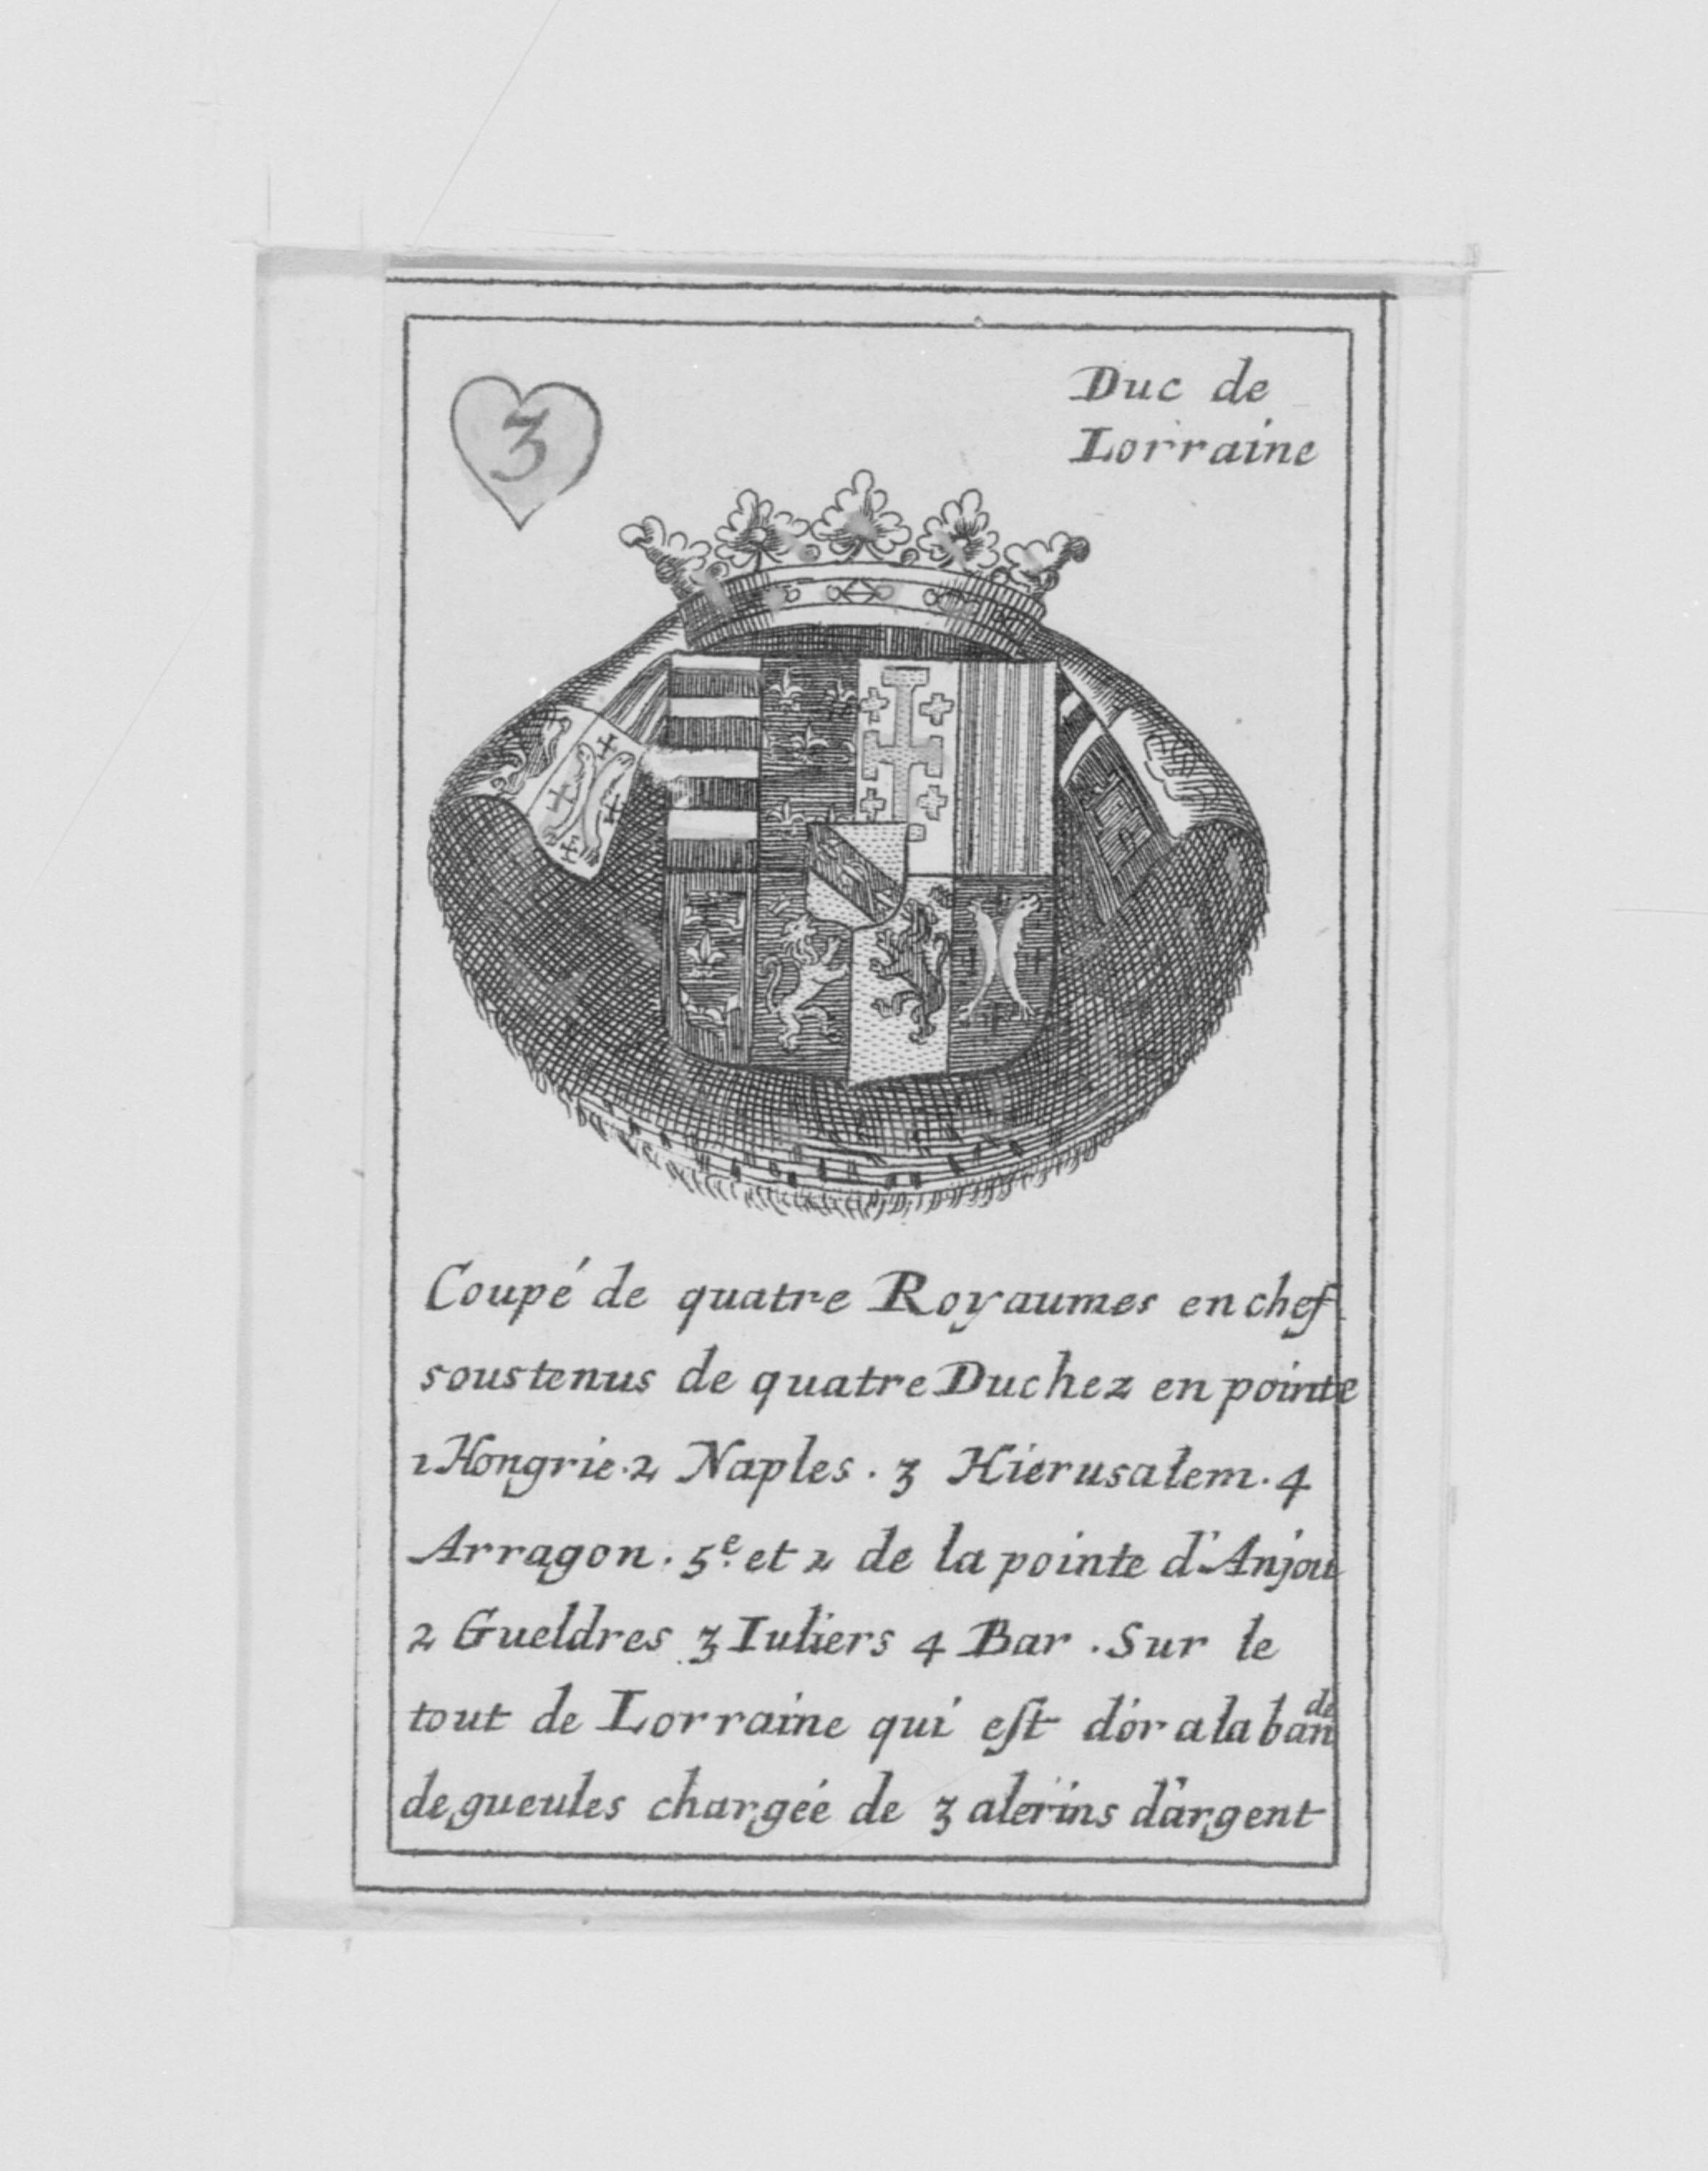 3
Duc de
Lorraine
Coupé de quatre Royaumes en chef
soustenus de quatre Duchez en pointe
1 Hongrie. 2 Naples. 3 Hierusalem. 4
Arragon. 5e. et 2 de la pointe d'Anjou
2 Gueldres 3 Iuliers 4 Bar. Sur le
tout de Lorraine qui eſt d'or a la ban de
de gueules chargée de 3 alerins d'argent